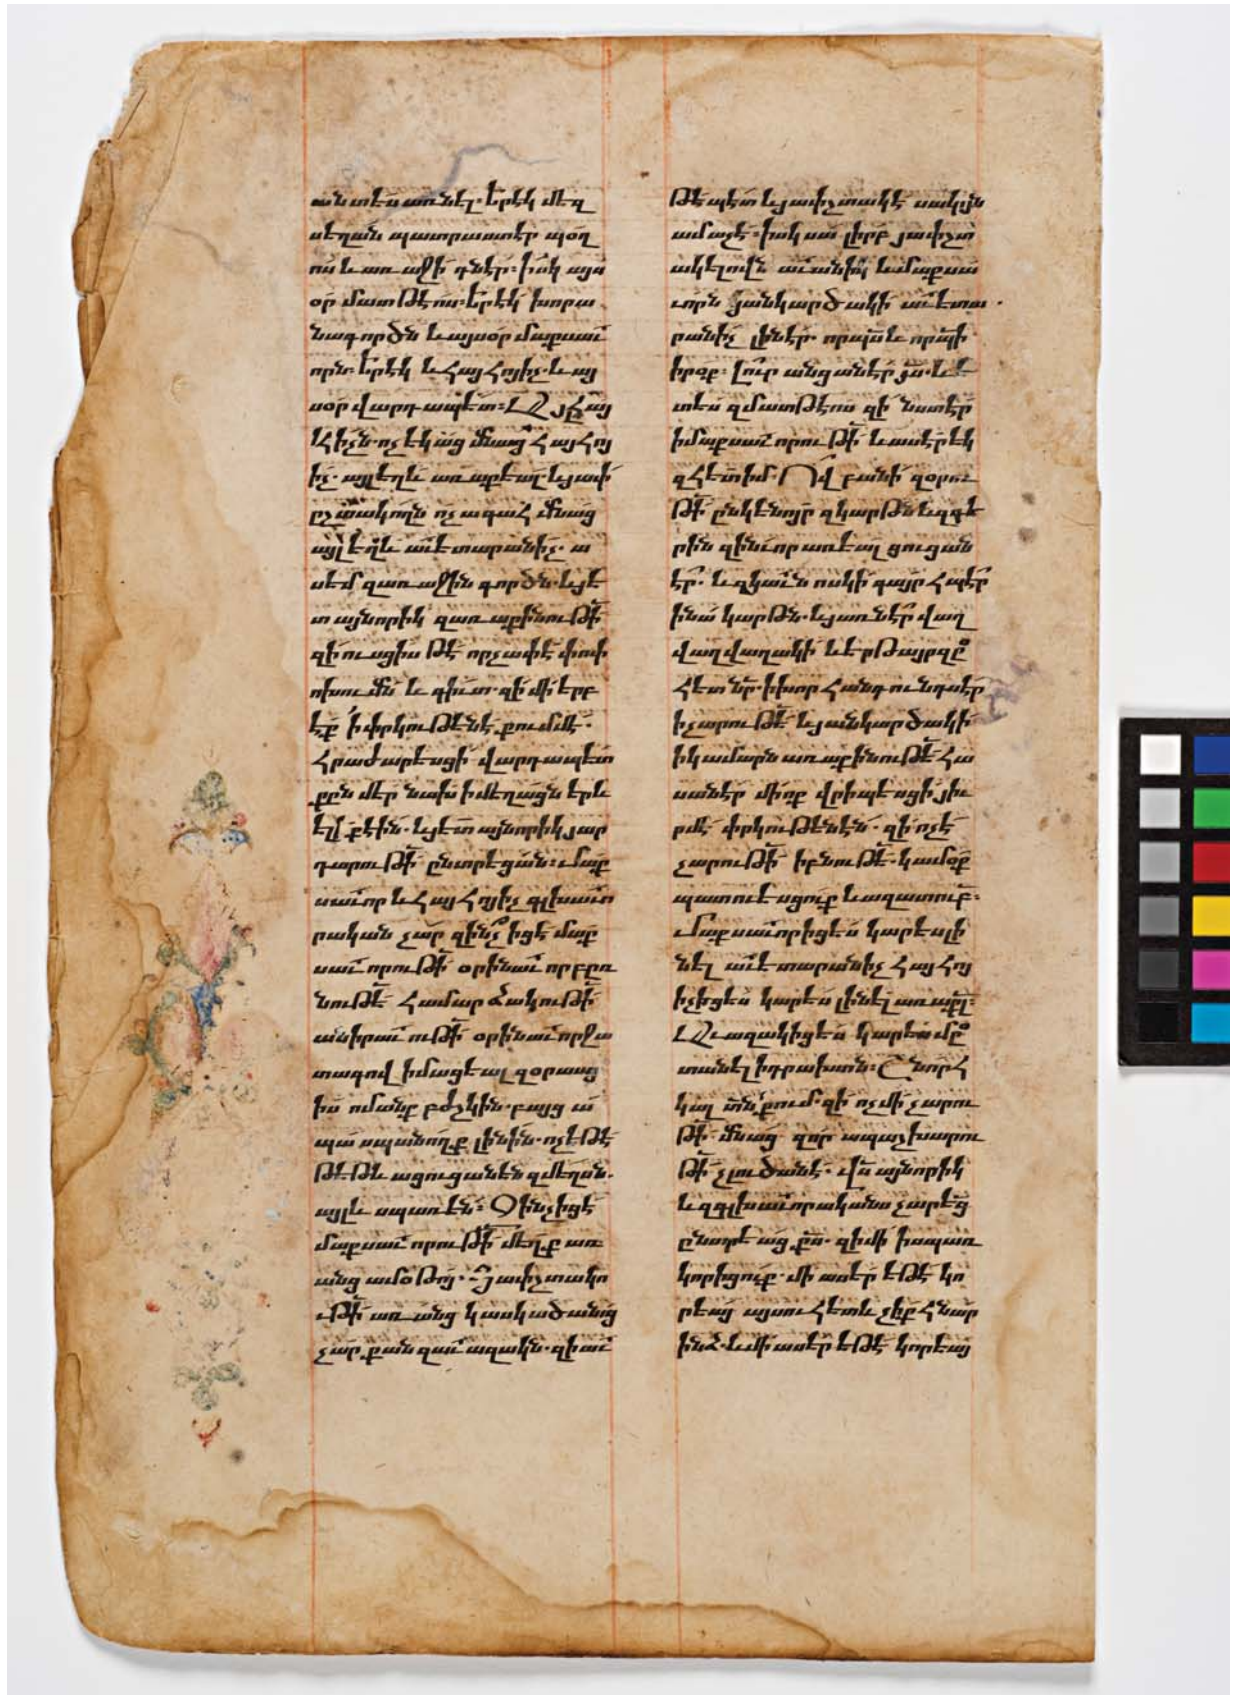 անտես առնել. երէկ մեզ
սեղան պատրաստէր պօղ
ոս և առաջի դնէր։ իսկ այս
օր մատթէոս։ երէկ խորա
նագործն և այսօր մաքսաւ
որն։ երէկ և հայհոյիչ. և այ
սօր վարդապետ։
հիչն. ոչ եկաց մնաց հայհոյ
իչ. այլ եղև առաքեալ. և յափ
ըշտակողն ոչ ագահ մնաց
այլ եղև աւետարանիչ. ա
սեմ զառաջին գործն. և յե
տ այնորիկ զառաքինութի
զի ուսցիս թէ որչափ է փոփ
ոխումն և գիւտ. զի մի երբ
էք ի փրկութենէ քումմէ.
հրաժարեսցի վարդապետ
քըն մեր նախ ի մեղացն երև
էլ քէին. և յետ այնորիկ յար
դարութի ընտրեցան։ մաք
սաւոր և հայհոյիչ գլխաւո
րական չար զինչ իցէ մաք
սաւորութի օրինաւոր բըռ
նութե համարձակութի
անիրաւութի օրինաւոր
տագով իմացեալ զօրասց
իս ոմանք բժշկին. բայց ա՛
պա սպանողք լինին. ոչ եթէ
թեթև ացուցանեն զմեղսն.
այլև սպառեն։ Զինչ իցէ
մաքսաւորութի մեղք առ
անց ամօթոյ. Յափշտակո
ւթի առանց կասկածանաց
չար քան զաւազակն. զի աւ
Թէպէտ և յափշտակէ սակայն
ամաչէ։ իսկ սա լիրբ յափշտ
ակելովն ահա նիկ և մաքսա
ւորն յանկարծակի աւետա
րանիչ լինէր. որպս և որպի
իրօք։ լուր անցանէր յս. և ե
տես զմատթէոս զի նստէր
ի մաքսաւորութի և ասէր եկ
զհետ իմ. Ով բանի զօրու
թի ընկենոյր զկարթն և զգե
րին զինւոր առեալ ցուցան
էր. և զկաւն ոսկի գայր հպէր
ինա կարթն. և յառնէր վաղ
վաղվաղակի և երթայր զը
հետ նր. ի խոր հանդունդսէր
ի չարութե և յանկարծակի
ի կամարն առաքինութե հա
սանէր մի ոք վրիպեսցի յիւ
րմէ փրկութենէն. զի ոչ է
չարութի ի բնութե. կամօք
պատուեսցուք և ազատութ։
Մաքսաւոր իցես կարես լի
նել աւետարանիչ հայհոյ
իչ իցես կարես լինել առաքլ։
Աւազակ իցես կարես մը
տանել ի դրախտն։ Շնորհ
կալ տն քում. զի ոչ մի չարու
թի մնաց զոր ապաշխարու
թի չլուծանէ. վս այնորիկ
և զգլխաւորականս չարեց
ընտրեաց քս. զի մի իսպառ
կորիցուք. մի ասեր եթէ կո
րեայ այսուհետև չիք հնար
ինձ. և մի ասեր եթէ կորեայ